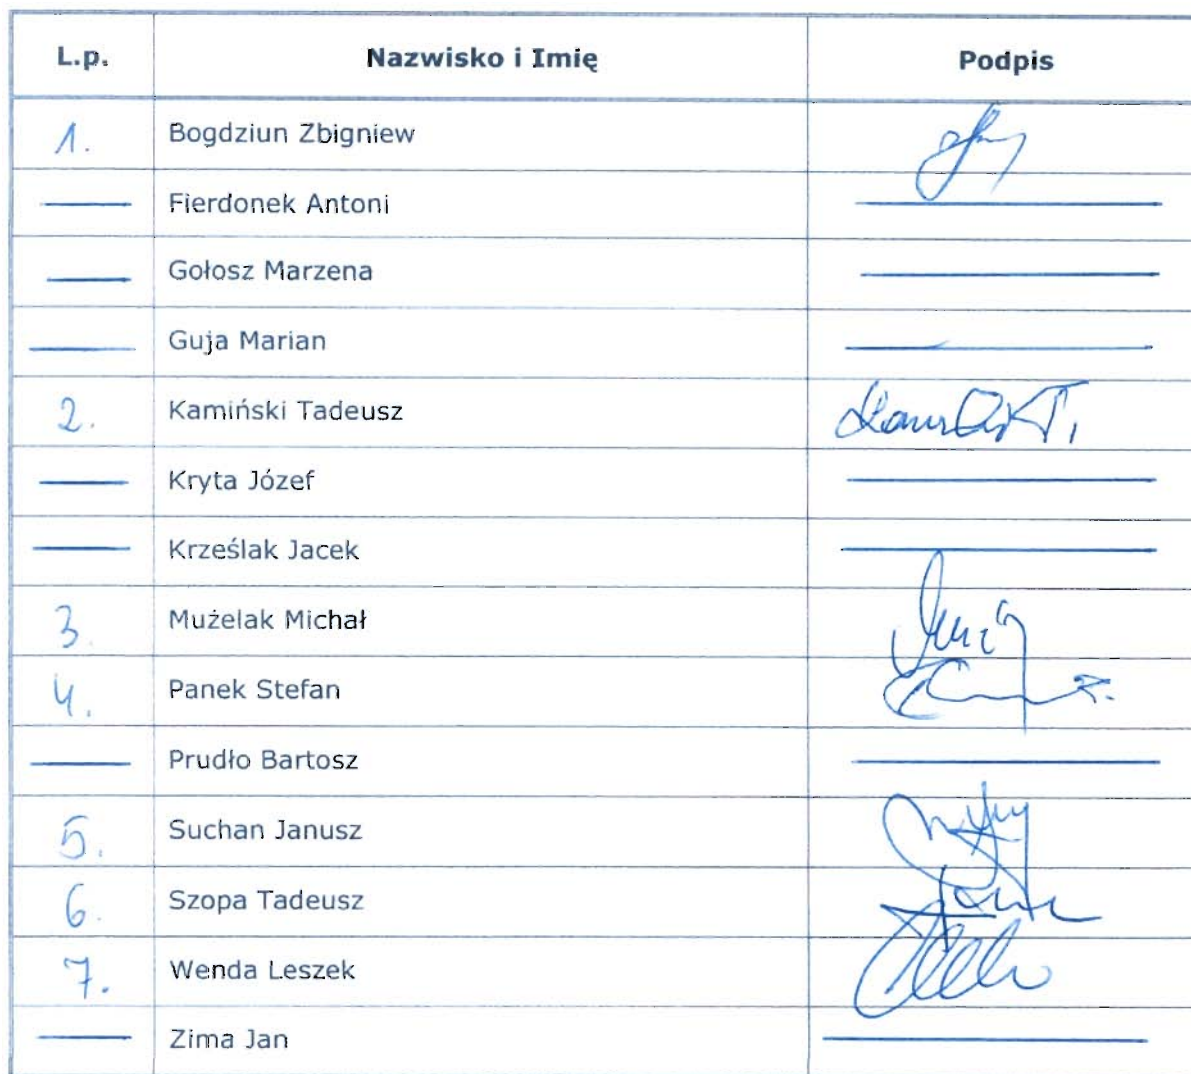 L.p. Nazwisko i Imię Podpis
1. Bogdziun Zbigniew
Fierdonek Antoni
Gołosz Marzena
Guja Marian
2. Kamiński Tadeusz
Kryta Józef
Krześlak Jacek
3. Mużelak Michał
4. Panek Stefan
Prudło Bartosz
5. Suchan Janusz
6. Szopa Tadeusz
7. Wenda Leszek
Zima Jan